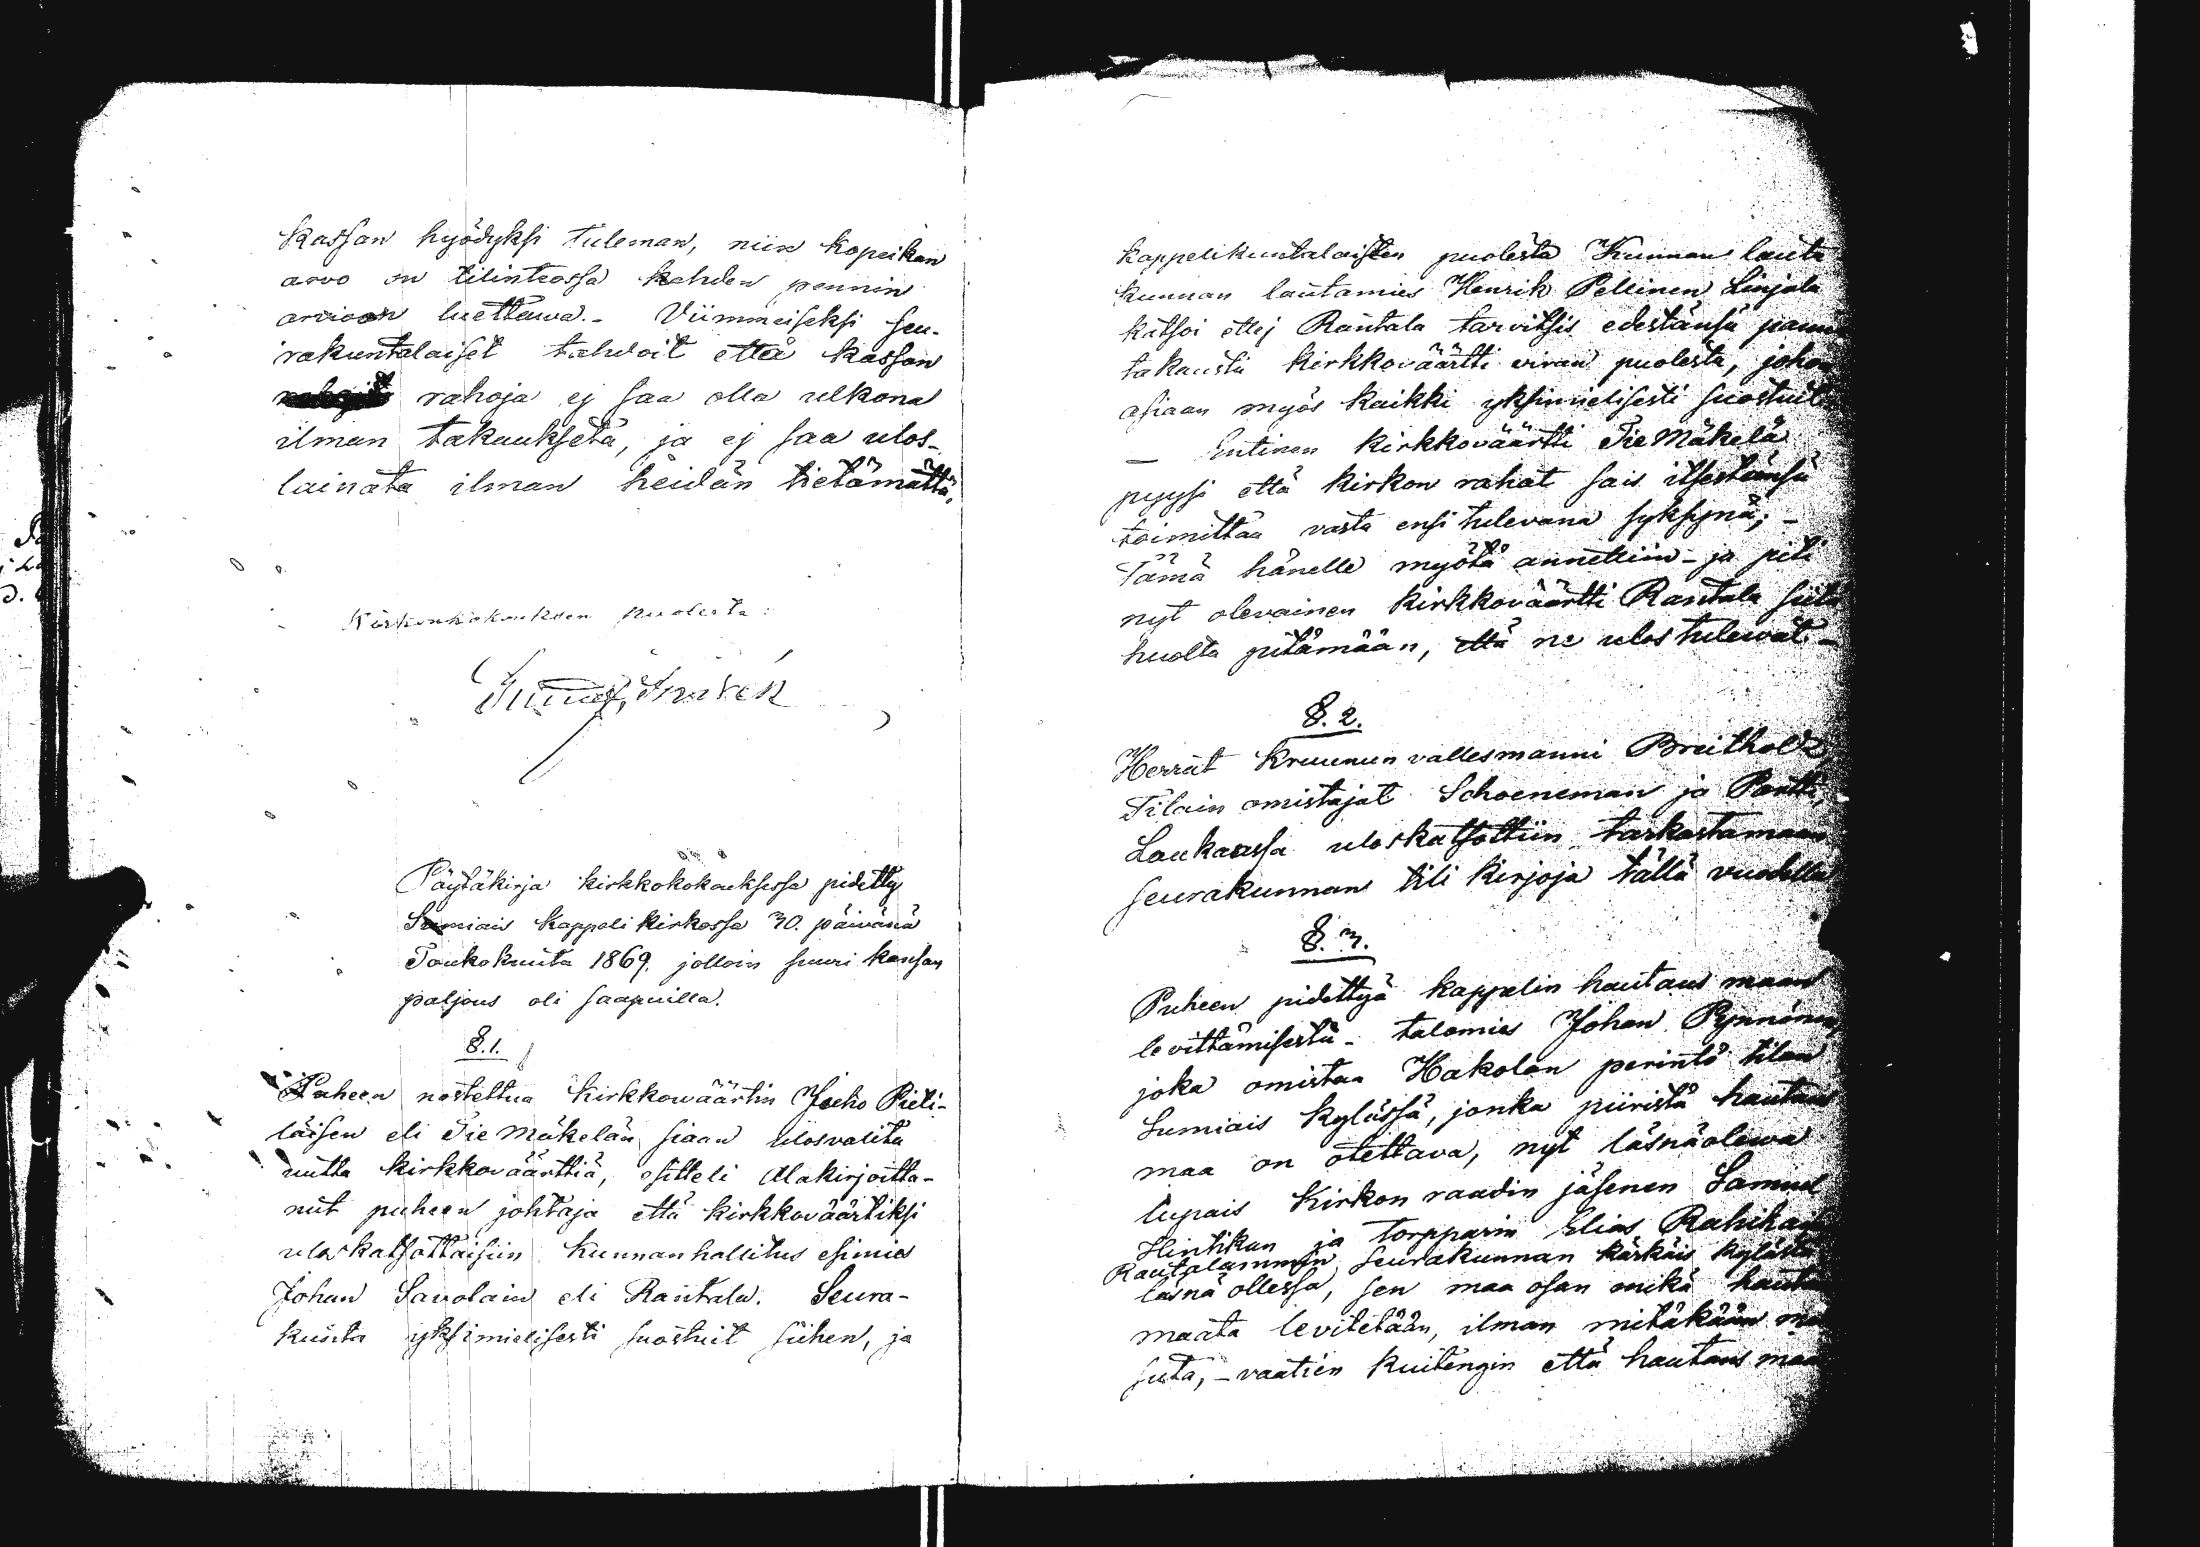 kassan hyödyksi tuleman, niin kopeikan
arvo on tilinteossa kahden pennin
arvioon luettawa. - Viimmeiseksi seu-
rakuntalaiset tahdoit että kassan
rahoja ej saa olla ulkona
ilman takauksetä, ja ej saa ulos-
lainata ilman heidän tietämättä.
Kirkonkokouksen puolesta:
Pöytäkirja kirkkokokouksessa pidetty
Sumiais kappeli kirkossa 30. päivänä
Toukokuuta 1869. jolloin suuri kansan
paljous oli saapuilla.
§.1.
Puheen nostettua kirkkowäärtin Joeho Pieti-
läisen eli Tie Mäkelän siaan ulosvalita
uutta kirkkoväärttiä, esitteli Alakirjoitta-
nut puheen johtaja että kirkkoväärtiksi
uloskatsottaisiin kunnanhallitus esimies
Johan Savolain eli Rantala. Seura-
kunta yksimielisesti suostuit siihen, ja
kappelikuntalaisten puolesta Kunnan lauta
kunnan lautamies Henrik Pellinen Linjala
katsoi ettej Rantala tarvitsis edestänsä
takausta kirkkoväärtti viran puolesta,
asiaan myös kaikki yksimielisesti suostuit
- Entinen kirkkoväärtti Tie Mäkelä
pyysi että kirkon rahat sais itsestänsä
toimittaa vasta ensi tulevana syksynä; -
Tämä hänelle myötä annettiin - ja piti
nyt olevainen kirkkoväärtti Rantala siitä
huolta pitämään, että ne ulos tulewat -
§. 2.
Herrat kruunun vallesmanni Breitholz,
Tilain omistajat Schoeneman ja Pontti,
Laukaassa uloskatsottiin tarkastamaan
seurakunnan tili kirjoja tällä vuodella
§. 3.
Puheen pidettyä kappelin hautaus maan
levittämisestä - talomies Johan Pynnönen,
joka omistaa Hakolan perintö tilan
Sumiais kylässä, jonka piiristä hautaus
maa on otettava, nyt läsnäolewa
lupais Kirkon raadin jäsenen Samuel
Hintikan ja torpparin Elias
Rautalammin seurakunnan kärkäis kylästä
läsnä ollessa, sen maa osan mikä
maata levitetään, ilman mitäkään
suta, - vaatien kuitengin että hautaus maa